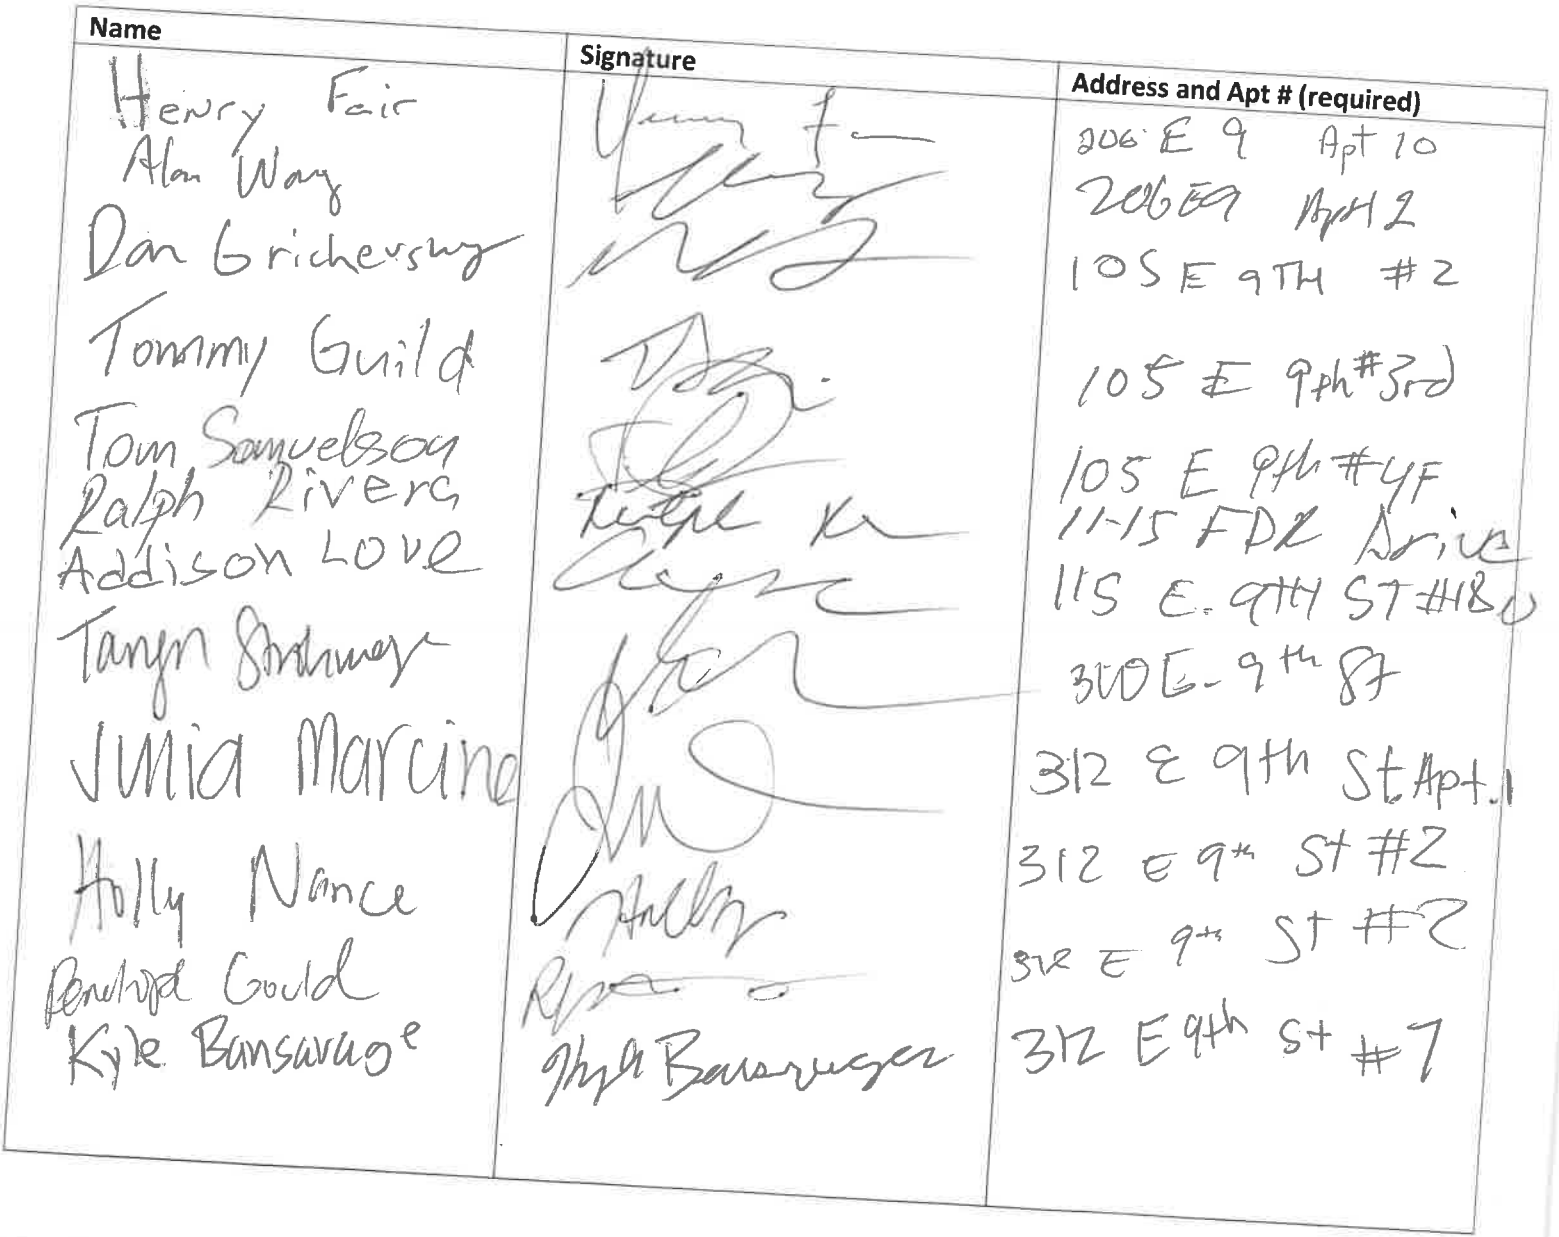 Name Signature Address and Apt # (required)
Henry Fair 206 E 9 Apt 10
Alan Wang 206 E9 Apt 2
Dan Grichevsky 105 E 9TH #2
Tommy Guild 105 E 9th #3rd
Tom Samuelson 105 E 9th #4F
Ralph Rivera Ralph 11-15 FDR Drive
Addison Love 115 E. 9TH ST
Taryn 310 E. 9th St
Junia Marcino 312 E 9th St. Apt. 1
Holly Nance Holly 312 E 9th St #2
Penelope Gould 312 E 9th St #2
Kyle Bansavage Kyle 312 E 9th St #7